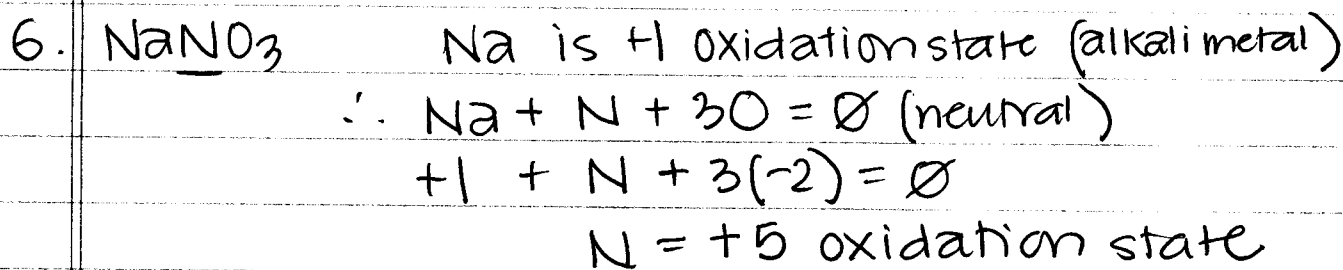 6. NaNO3 Na is +1 oxidation state (alkali metal)
∴ Na + N + 3O = Ø (neutral)
+1 + N + 3(-2) = Ø
N = +5 oxidation state